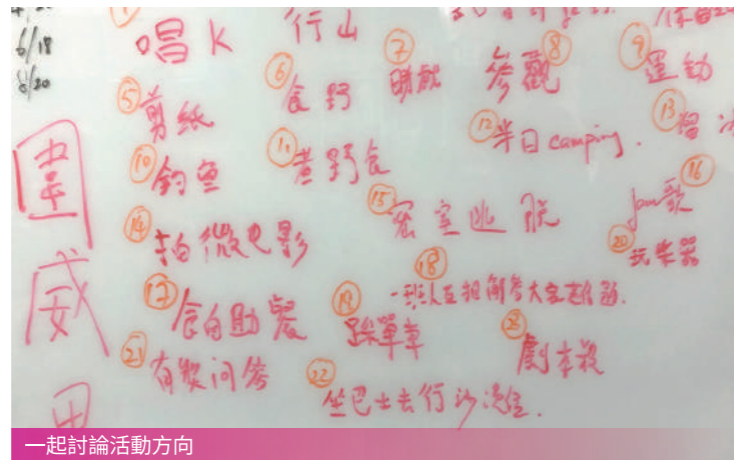 6/18
8/20
唱K
行山
⑤剪紙
⑥食野
⑦
⑧參觀
⑨運動
⑩釣魚
⑪煮野食
⑫半日camping.
⑬溜冰
⑭拍微电影
⑮密室逃脫
⑯Jam歌
⑰食自助餐
⑱一班人互相解答大家
⑲踩單車
⑳玩樂器
㉑有獎问答
㉒坐巴士去行沙
劇本殺
圍
威
一起討論活動方向